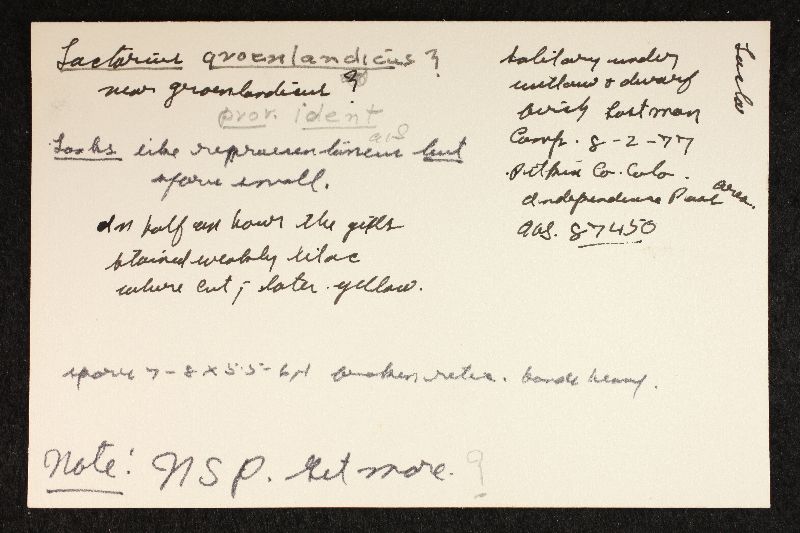 Lactarius groenlandicus ?
near groenlandicus ?
prov. ident
AHS
Looks like representaneus but
spore small.
In half an hour the gills
stained weakly lilac
where cut; later yellow.
spore 7-8 x 5.5-6 µ broken retic. bands heavy.
Note: N S P. Get more. ?
Solitary under
willow & dwarf
birch Lostman
Camp. 8-2-77
Pitkin Co. Colo.
Independence Pass area.
AHS. 87450
Lacta